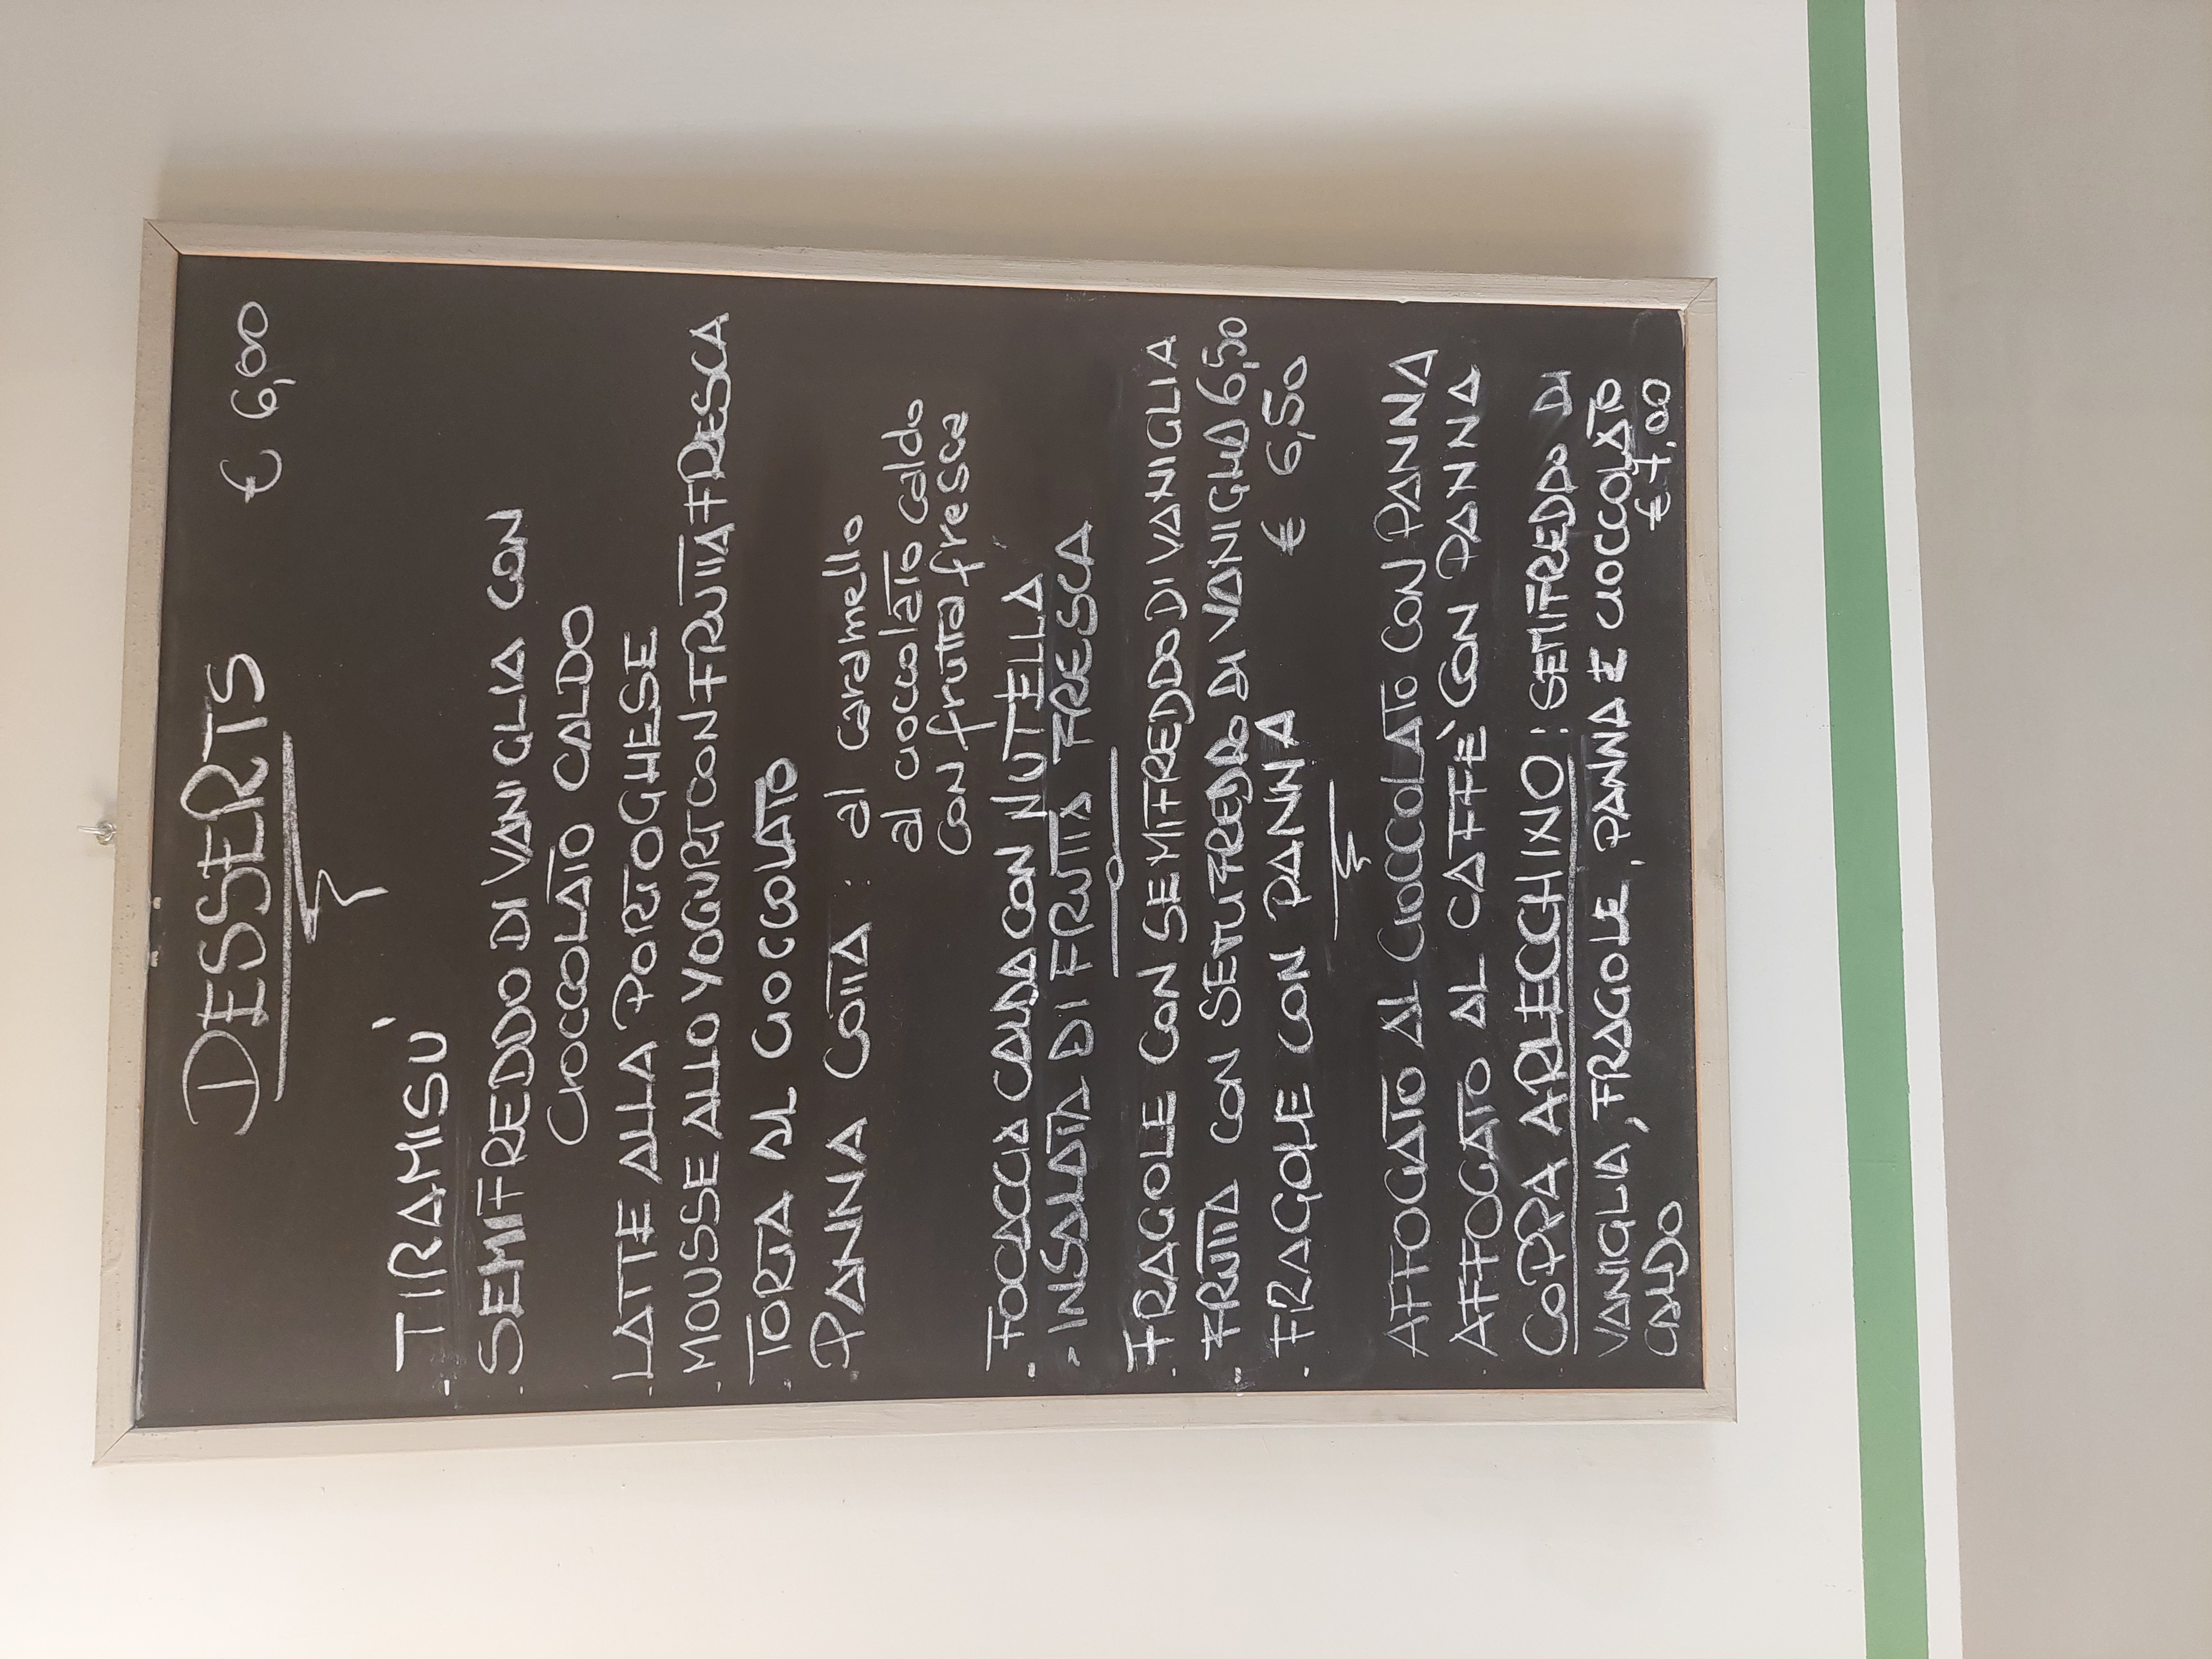 DESSERTS € 6,00
- TIRAMISU'
- SEMIFREDDO DI VANIGLIA CON
CIOCCOLATO CALDO
- LATTE ALLA PORTOGHESE
- MOUSSE ALLO YOGURT CON FRUTTA FRESCA
- TORTA AL CIOCCOLATO
PANNA COTTA : al caramello
al cioccolato caldo
con frutta fresca
- FOCACCIA CALDA CON NUTELLA
- INSALATA DI FRUTTA FRESCA
- FRAGOLE CON SEMIFREDDO DI VANIGLIA
- FRUTTA CON SEMIFREDDO DI VANIGLIA 6,50
- FRAGOLE CON PANNA € 6,50
AFFOGATO AL CIOCCOLATO CON PANNA
- AFFOGATO AL CAFFE' CON PANNA
COPPA ARLECCHINO : SEMIFREDDO DI
VANIGLIA, FRAGOLE, PANNA E CIOCCOLATO
CALDO € 7,00